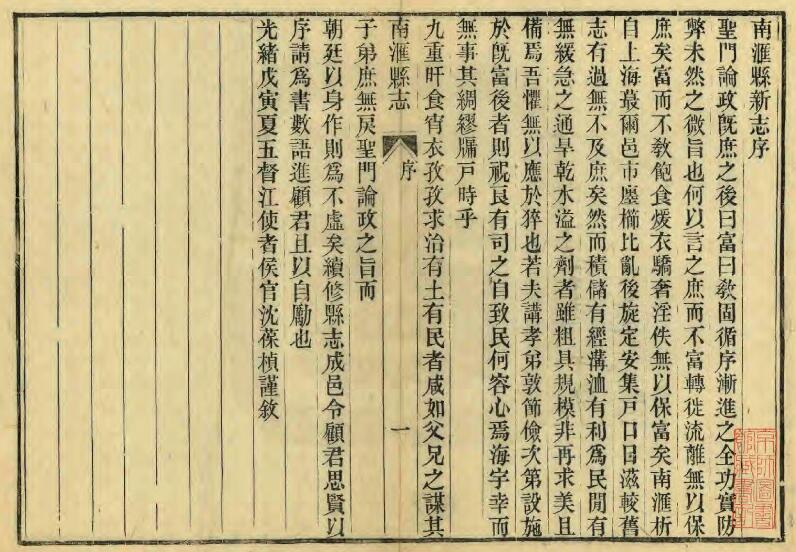 南滙縣新志序
聖門論政既庶之後曰富曰教固循序漸進之全功實防
弊未然之微旨也何以言之庶而不富轉徙流離無以保
庶矣富而不教飽食煖衣驕奢淫佚無以保富矣南滙析
自上海蕞爾邑市廛櫛比亂後旋定安集戸口日滋較舊
志有過無不及庶矣然而積儲有經溝洫有利爲民閒有
無緩急之通旱乾水溢之劑者雖粗具規模非再求美且
備焉吾懼無以應於猝也若夫講孝弟敦節儉次第設施
於既富後者則視良有司之自致民何容心焉海宇幸而
無事其綢繆牖戸時乎
九重旰食宵衣孜孜求治有土有民者咸如父兄之謀其
南滙縣志 序 一
子弟庶無戾聖門論政之旨而
朝廷以身作則爲不虛矣續修縣志成邑令顧君思賢以
序請爲書數語進顧君且以自勵也
光緒戊寅夏五督江使者侯官沈葆楨謹敘